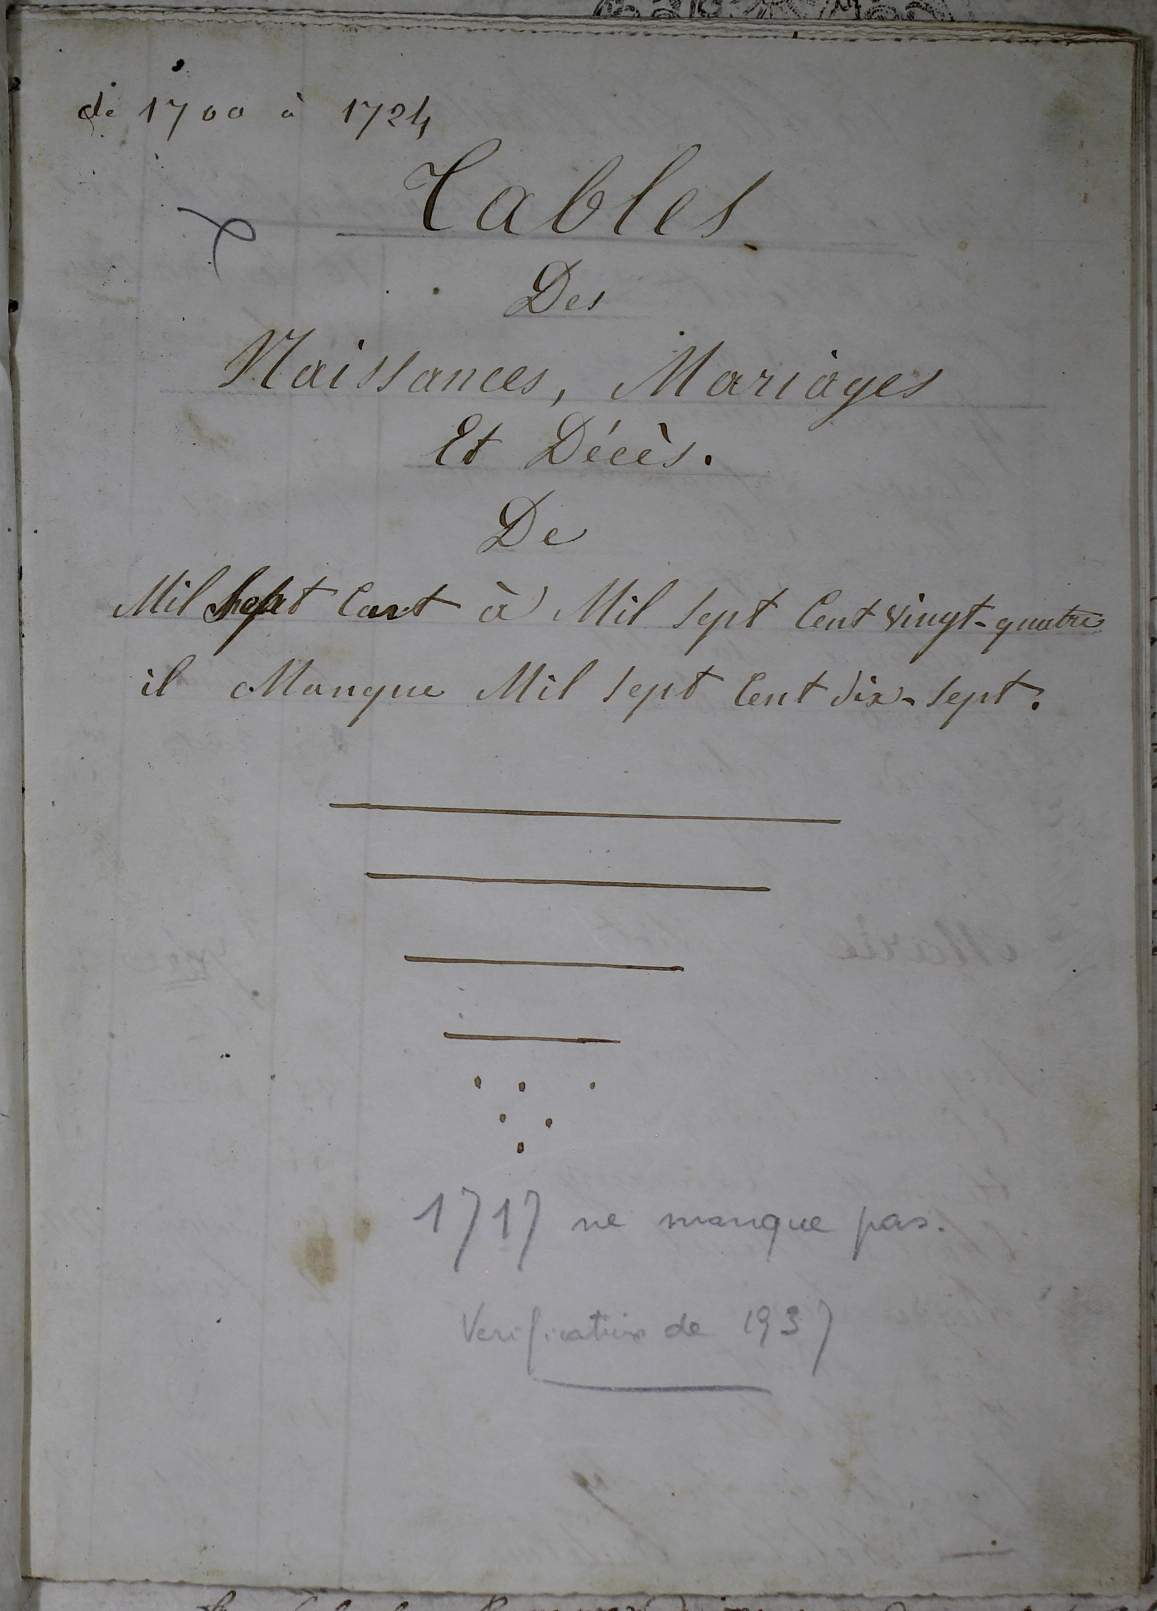 de 1700 à 1724
Tables
Des
Naissances, Mariages
Et Décès.
De
Mil Sept Cent à Mil Sept Cent vingt-quatre
il Manque Mil Sept Cent dix-sept.
1717 ne manque pas.
Verification de 1937